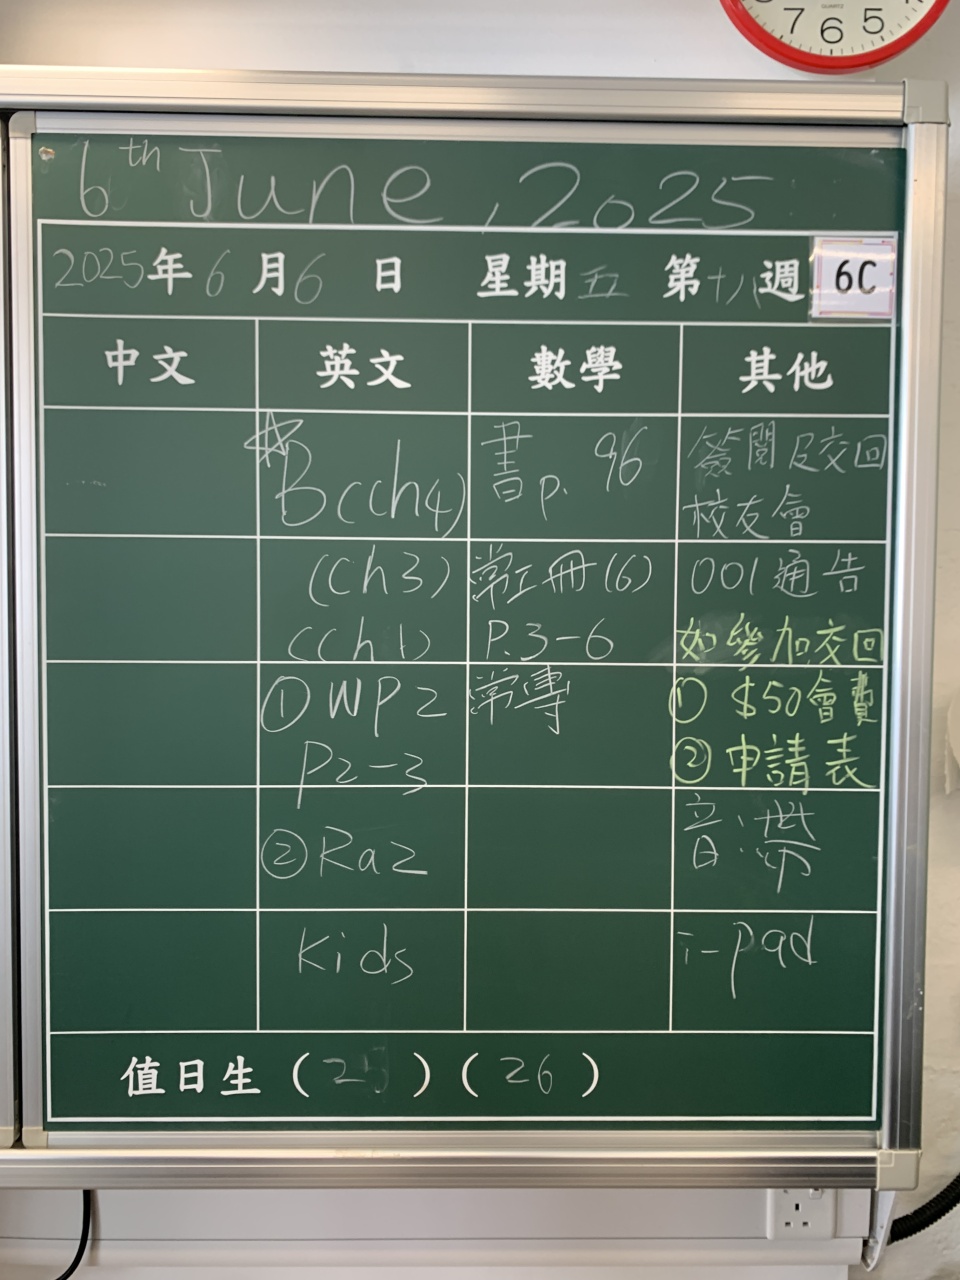 7 6 5
QUARTZ
6th June, 2025
2025年6月6日 星期五 第十八週 6C
中文 英文 數學 其他
☆B(Ch4) 書p.96 簽閱及交回
校友會
(Ch3) 常工冊(6) 001通告
(Ch1) P.3-6 如參加交回
①WP2 常專 ①$50會費
P2-3 ②申請表
②Raz 音:帶
Kids i-pad
值日生(25)(26)